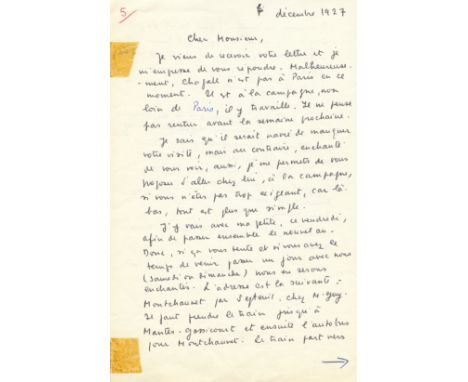 5
décembre 1927
Cher Monsieur,
Je viens de recevoir votre lettre et je
m'empresse de vous répondre. Malheureuse-
ment, Chagall n'est pas à Paris en ce
moment. Il est à la campagne, non
loin de Paris, il y travaille. Il ne pense
pas rentrer avant la semaine prochaine.
Je sais qu'il serait navré de manquer
votre visite, mais au contraire, enchanté
de vous voir, aussi, je me permets de vous
proposer d'aller chez lui, à la campagne,
si vous n'êtes pas trop exigeant, car là-
bas, tout est plus que simple.
J'y vais avec ma petite, ce vendredi,
afin de passer ensemble le nouvel an.
Donc, si ça vous tente et si vous avez le
temps de venir passer un jour avec nous
(samedi ou dimanche) nous en serons
enchantés. L'adresse est la suivante :
Montchauvet par Septeuil, chez M. Guy.
Il faut prendre le train jusqu'à
Mantes-Gassicourt et ensuite l'autobus
pour Montchauvet. Le train part vers